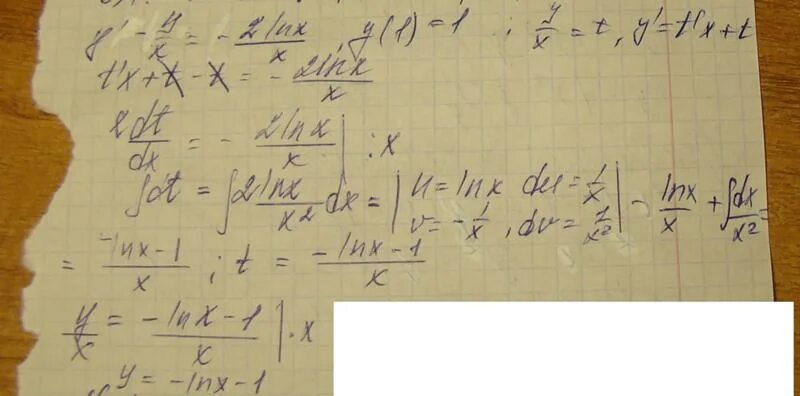 y' - y/x = - 2lnx/x, y(1)=1 ; y/x = t, y'=t'x+t
t'x + t - t = - 2lnx/x
xdt/dx = - 2lnx/x | : x
∫dt = ∫ 2lnx/x² dx = | u = lnx du = 1/x v = - 1/x, dv = 1/x² | - lnx/x + ∫ dx/x² =
= -lnx-1/x ; t = -lnx-1/x
y/x = -lnx-1/x | · x
y = -lnx-1